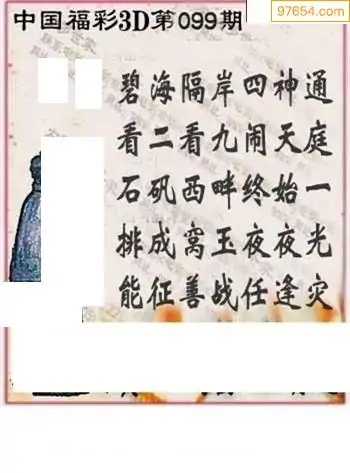 97654.com
中国福彩3D第099期
碧海隔岸四神通
看二看九闹天庭
石矶西畔终始一
排成窝玉夜夜光
能征善战任逢灾